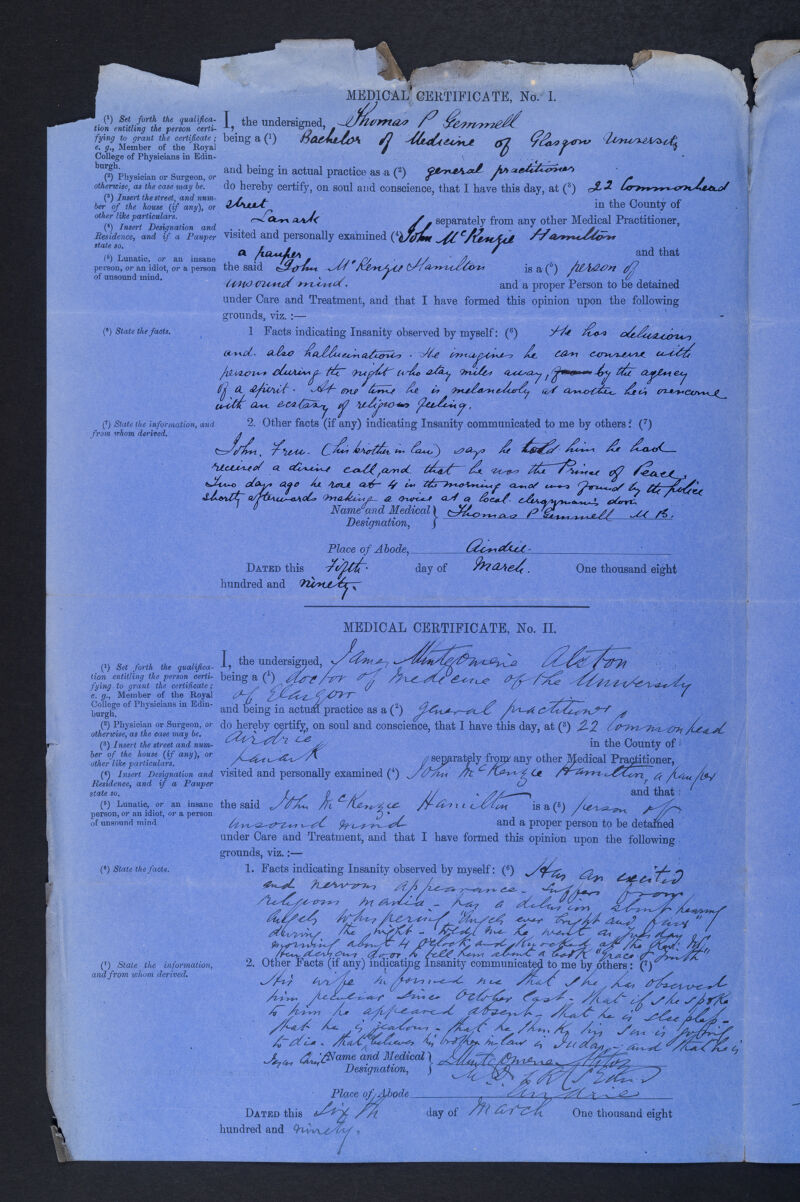 MEDICAL CERTIFICATE, No. I.
(¹) Set forth the qualifica-
tion entitling the person certi-
fying to grant the certificate;
e. g., Member of the Royal
College of Physicians in Edin-
burgh.
(²) Physician or Surgeon, or
otherwise, as the case may be.
(³) Insert the street, and num-
ber of the house (if any), or
other like particulars.
(⁴) Insert Designation and
Residence, and if a Pauper
state so.
(⁵) Lunatic, or an insane
person, or an idiot, or a person
of unsound mind.
I, the undersigned, Thomas P Gemmell
being a (¹) Bachelor of Medicine of Glasgow University
and being in actual practice as a (²) general practitioner
do hereby certify, on soul and conscience, that I have this day, at (³) 22 Commonhead
Street in the County of
Lanark separately from any other Medical Practitioner,
visited and personally examined (⁴) John McKenzie Hamilton
a pauper and that
the said John McKenzie Hamilton is a (⁵) person of
unsound mind. and a proper Person to be detained
under Care and Treatment, and that I have formed this opinion upon the following
grounds, viz. :—
(⁶) State the facts.
1 Facts indicating Insanity observed by myself: (⁶) He has delusions
and also hallucinations. He imagines he can converse with
persons during the night who stay miles away, by the agency
of a spirit. At one time he is melancholy at another he is overcome
with an ecstasy of religious feeling.
(⁷) State the information, and
from whom derived.
2. Other facts (if any) indicating Insanity communicated to me by others: (⁷)
John Frew (his brother in law) says he told him he had
received a divine call, and that he was the Prince of Peace.
Two days ago he rose at 4 in the morning and was found by the police
shortly afterwards making a noise at a local clergyman's door.
Name and Medical Designation, Thomas P Gemmell M B.
Place of Abode, Airdrie.
DATED this Fifth day of March. One thousand eight
hundred and ninety.
MEDICAL CERTIFICATE, No. II.
(¹) Set forth the qualifica-
tion entitling the person certi-
fying to grant the certificate;
e. g., Member of the Royal
College of Physicians in Edin-
burgh.
(²) Physician or Surgeon, or
otherwise, as the case may be.
(³) Insert the street and num-
ber of the house (if any), or
other like particulars.
(⁴) Insert Designation and
Residence, and if a Pauper
state so.
(⁵) Lunatic, or an insane
person, or an idiot, or a person
of unsound mind
I, the undersigned, James Montgomerie Alston
being a (¹) doctor of medicine of the University
of Glasgow
and being in actual practice as a (²) general practitioner
do hereby certify, on soul and conscience, that I have this day, at (³) 22 Commonhead
Airdrie in the County of
Lanark separately from any other Medical Practitioner,
visited and personally examined (⁴) John McKenzie Hamilton, a pauper
and that
the said John McKenzie Hamilton is a (⁵) person of
unsound mind and a proper person to be detained
under Care and Treatment, and that I have formed this opinion upon the following
grounds, viz. :—
(⁶) State the facts.
1. Facts indicating Insanity observed by myself: (⁶) Has an excited
and nervous appearance - suffers from
religious mania - has a delusion about hearing
angels whispering "angels ever bright and fair"
during the night - told me he went on
morning about 4 o'clock and knocked at the Rev. Mr
Henderson's door to tell him about a book "Grace & Truth"
(⁷) State the information,
and from whom derived.
2. Other Facts (if any) indicating Insanity communicated to me by others: (⁷)
His wife informed me that she has observed
him peculiar since October last - that if she spoke
to him he appeared absent - that he is sleepless -
that he is jealous - that he thinks his son is going
to die - that believes his brother in law is Judas, and that he is
Jesus Christ
Name and Medical Designation, Montgomerie Alston
Place of Abode Airdrie
DATED this Sixth day of March One thousand eight
hundred and ninety.